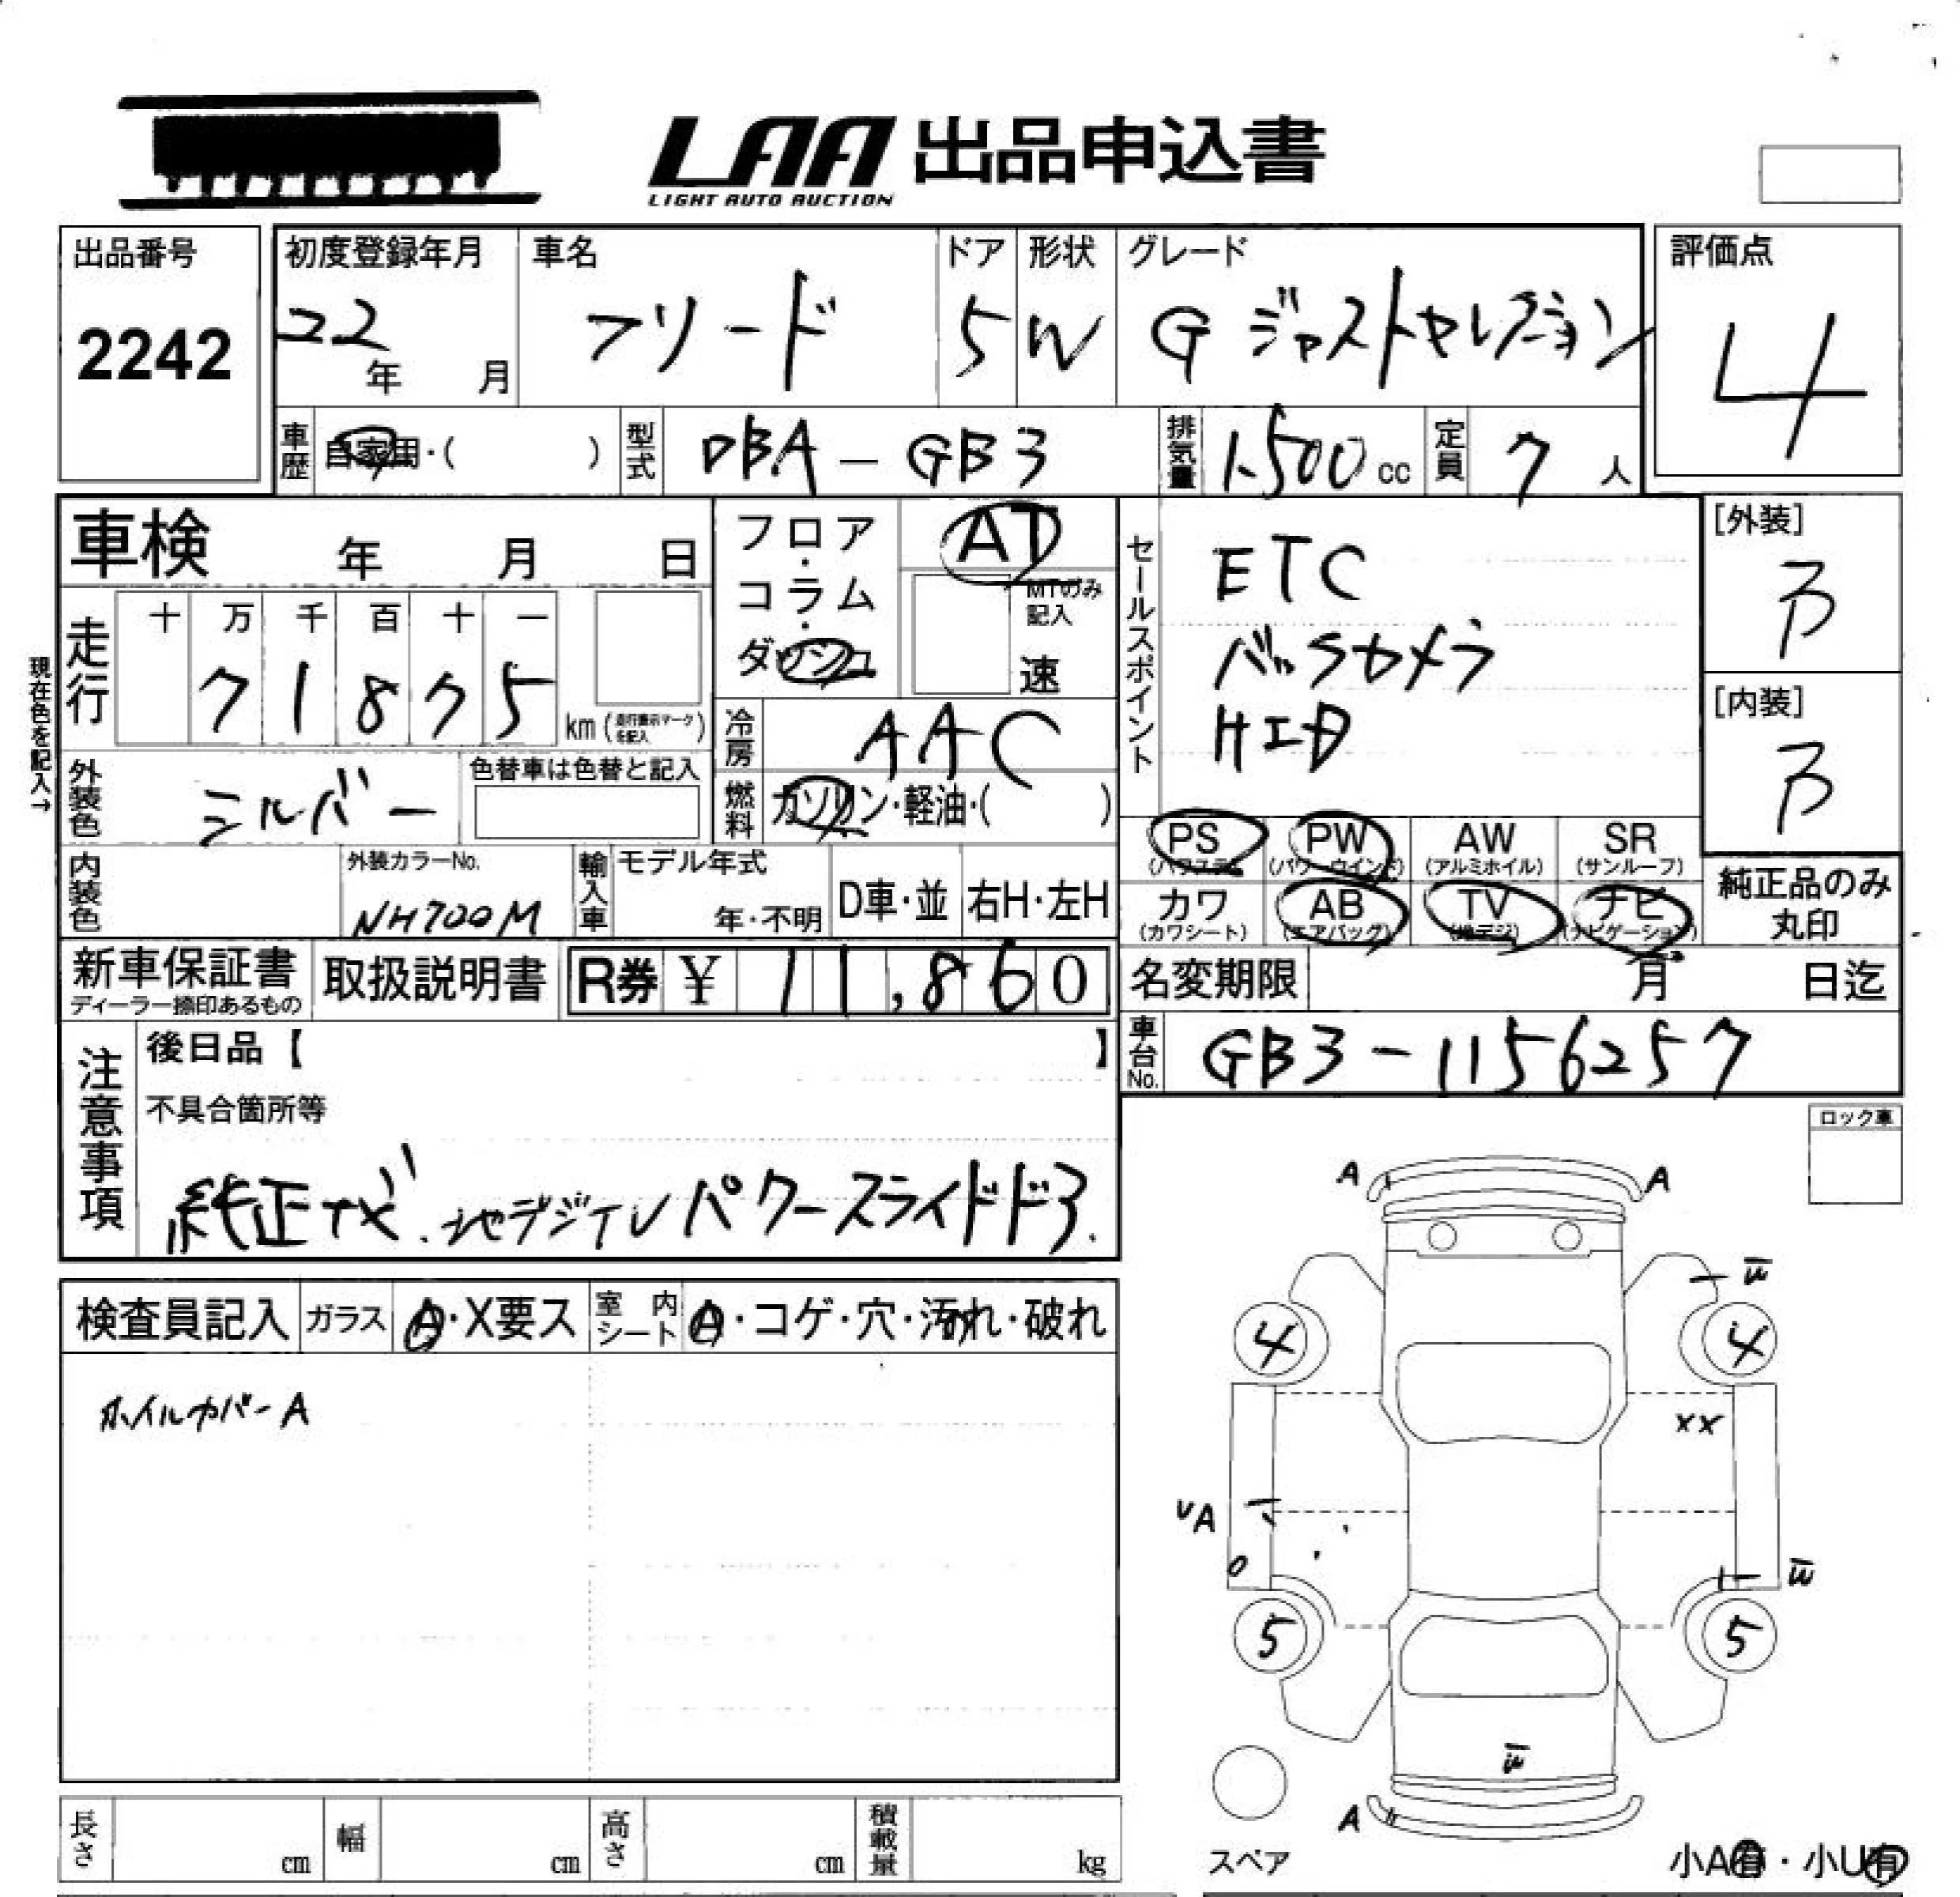 LAA 出品申込書
LIGHT AUTO AUCTION
出品番号
2242
初度登録年月
22年 月
車名
フリード
ドア
5
形状
W
グレード
G ジャストセレクション
評価点
4
車歴
自家用・( )
型式
DBA-GB3
排気量
1.500cc
定員
7人
車検 年 月 日
フロア・コラム・ダッシュ
AT
MTのみ記入
速
セールスポイント
ETC
バックカメラ
HID
[外装]
B
[内装]
B
現在色を記入→
走行
十 万 千 百 十 一
7 1 8 7 5
km(走行表示マークを記入)
冷房
AAC
外装色
シルバー
色替車は色替と記入
燃料
ガソリン・軽油・( )
PS (パワステ)
PW (パワーウインド)
AW (アルミホイル)
SR (サンルーフ)
内装色
外装カラーNo.
NH700M
輸入車
モデル年式
年・不明
D車・並
右H・左H
カワ (カワシート)
AB (エアバッグ)
TV (地デジ)
ナビ (ナビゲーション)
純正品のみ丸印
新車保証書
ディーラー捺印あるもの
取扱説明書
R券 ¥ 11,860
名変期限 月 日迄
車台No.
GB3-1156257
注意事項
後日品【 】
不具合箇所等
純正ナビ.地デジTVパワースライドドア.
ロック車
検査員記入
ガラス
A・X要ス
室内シート
A・コゲ・穴・汚れ・破れ
ホイルカバーA
A A
W
4 4
XX
UA
W
5 5
W
A
スペア
小A有・小U有
長さ cm
幅 cm
高さ cm
積載量 kg